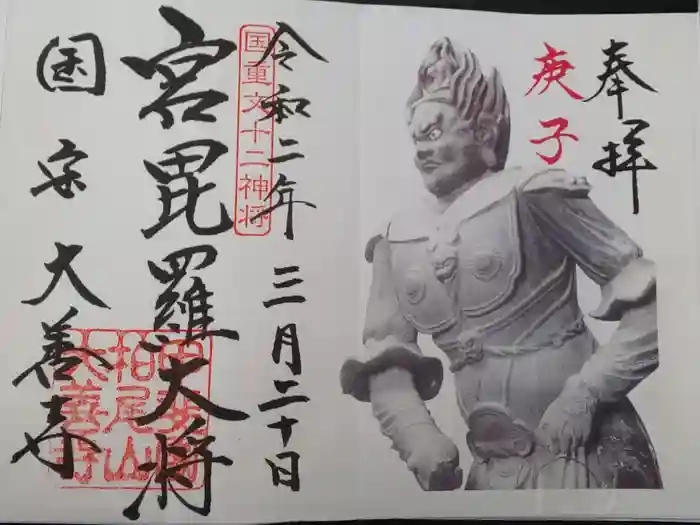 奉拝
庚子
令和二年 三月二十日
国重文十二神将
宮毘羅大将
国宝 大善寺
甲斐國
柏尾山
大善寺